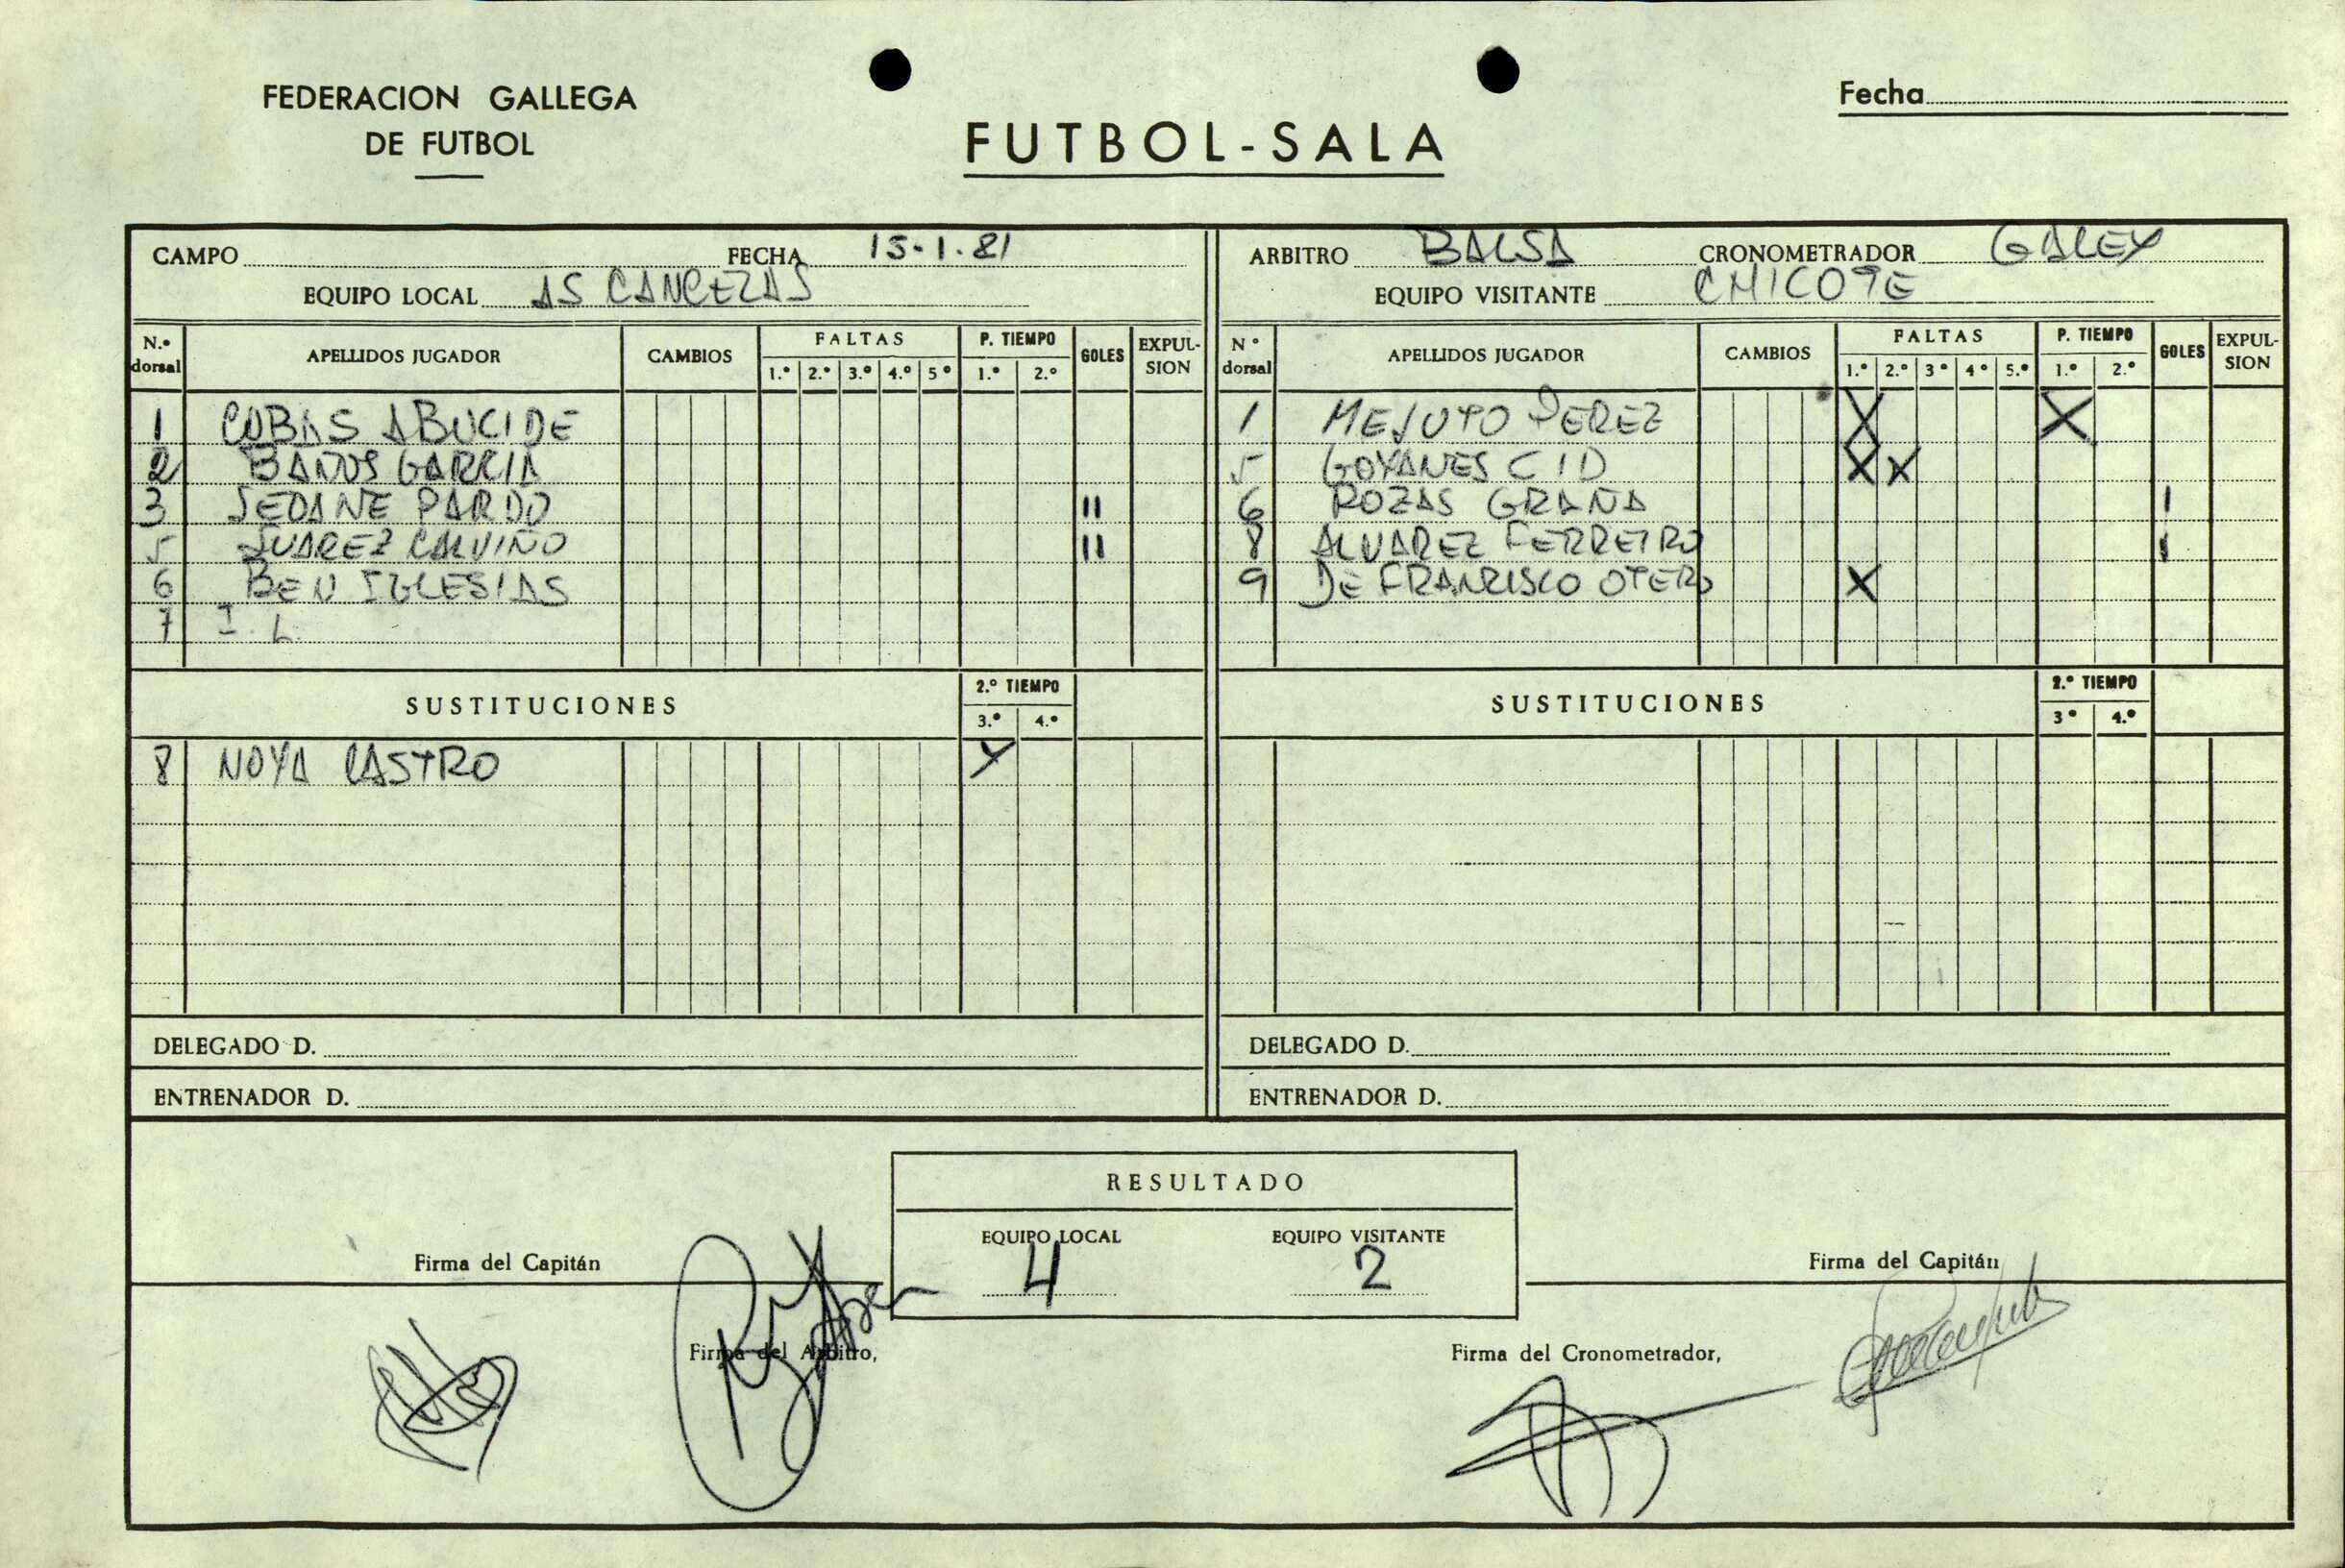 FEDERACION GALLEGA
DE FUTBOL
FUTBOL-SALA
Fecha
CAMPO FECHA 15-1.81
EQUIPO LOCAL AS CANCEZAS
N.º dorsal APELLIDOS JUGADOR CAMBIOS FALTAS 1.º 2.º 3.º 4.º 5º P. TIEMPO 1.º 2.º GOLES EXPUL-SION
1 COBAS ABUCIDE
2 BAÑOS GARCIA
3 SEOANE PARDO II
5 SUAREZ CALVIÑO II
6 BEN IGLESIAS
7 I. L.
SUSTITUCIONES 2.º TIEMPO 3.º 4.º
8 NOYA CASTRO X
DELEGADO D.
ENTRENADOR D.
ARBITRO BALSA CRONOMETRADOR GALEY
EQUIPO VISITANTE CHICOTE
Nº dorsal APELLIDOS JUGADOR CAMBIOS FALTAS 1.º 2.º 3º 4º 5.º P. TIEMPO 1.º 2.º GOLES EXPUL-SION
1 MEJUTO PEREZ X X
5 GOYANES CID X X
6 ROZAS GRAÑA I
8 ALVAREZ FERREIRO I
9 DE FRANCISCO OTERO X
SUSTITUCIONES 2.º TIEMPO 3º 4.º
DELEGADO D.
ENTRENADOR D.
RESULTADO
EQUIPO LOCAL EQUIPO VISITANTE
4 2
Firma del Capitán
Firma del Capitán
Firma del Arbitro,
Firma del Cronometrador,